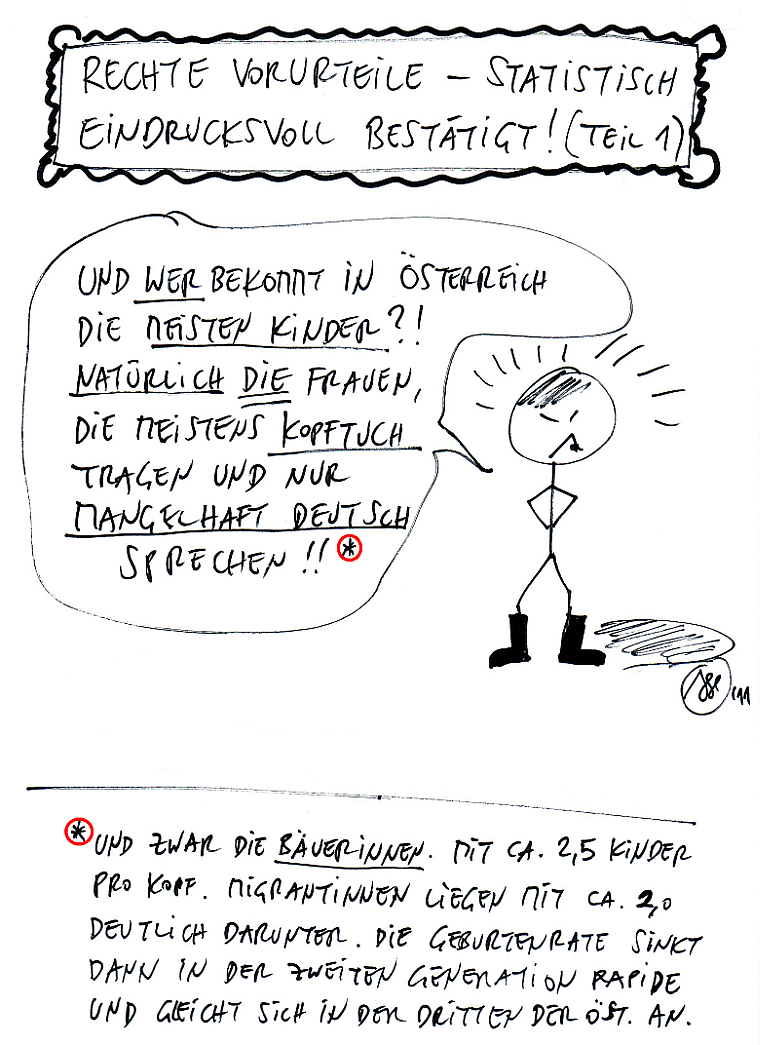 RECHTE VORURTEILE – STATISTISCH
EINDRUCKSVOLL BESTÄTIGT! (TEIL 1)
UND WER BEKOMMT IN ÖSTERREICH
DIE MEISTEN KINDER?!
NATÜRLICH DIE FRAUEN,
DIE MEISTENS KOPFTUCH
TRAGEN UND NUR
MANGELHAFT DEUTSCH
SPRECHEN!! *
'11
* UND ZWAR DIE BÄUERINNEN. MIT CA. 2,5 KINDER
PRO KOPF. MIGRANTINNEN LIEGEN MIT CA. 2,0
DEUTLICH DARUNTER. DIE GEBURTENRATE SINKT
DANN IN DER ZWEITEN GENERATION RAPIDE
UND GLEICHT SICH IN DER DRITTEN DER ÖST. AN.